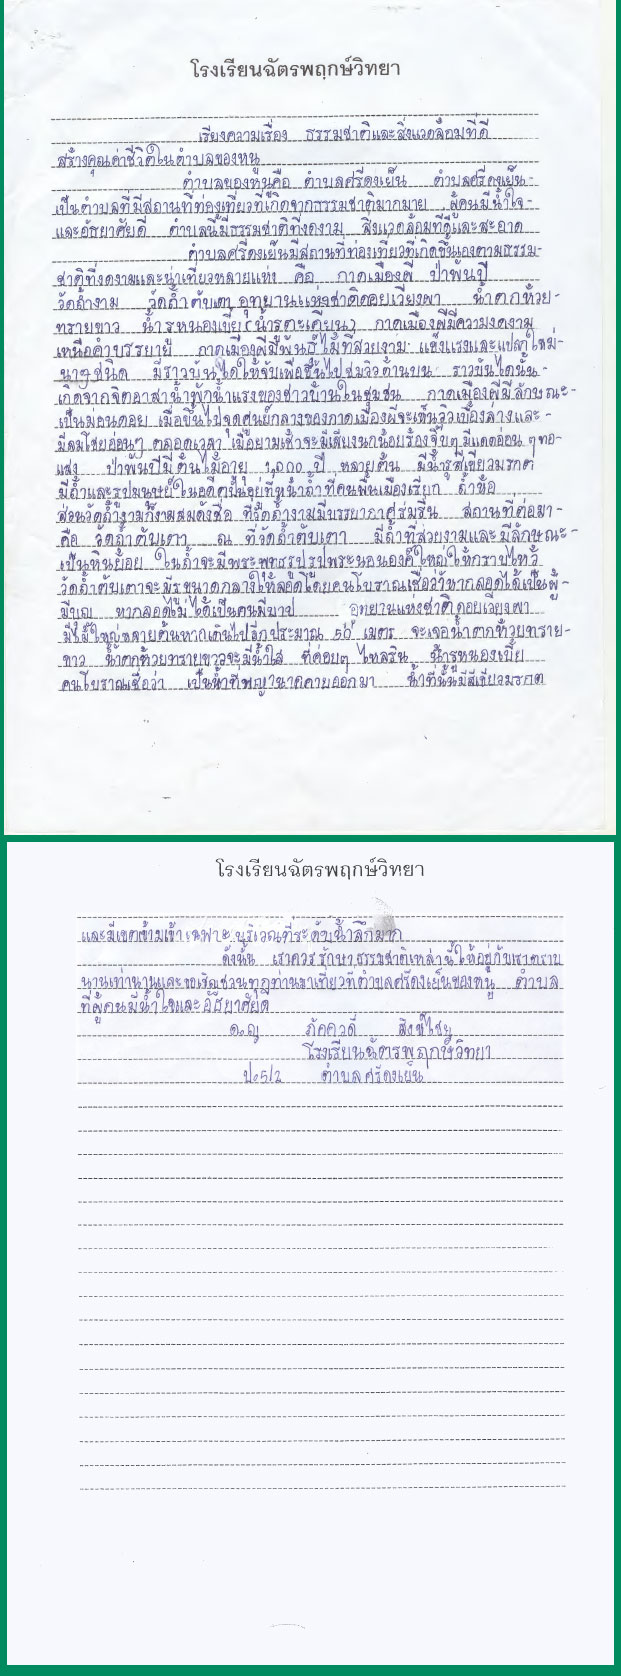 โรงเรียนฉัตรพฤกษ์วิทยา
เรียงความเรื่อง ธรรมชาติและสิ่งแวดล้อมที่ดี
สร้างคุณค่าชีวิตในตำบลของหนู
ตำบลของหนูคือ ตำบลศรีดงเย็น ตำบลศรีดงเย็น-
เป็นตำบลที่มีสถานที่ท่องเที่ยวที่เกิดจากธรรมชาติมากมาย ผู้คนมีน้ำใจ-
และอัธยาศัยดี ตำบลนี้มีธรรมชาติที่งดงาม สิ่งแวดล้อมที่ดีและสะอาด
ตำบลศรีดงเย็นมีสถานที่ท่องเที่ยวที่เกิดขึ้นเองตามธรรม-
ชาติที่งดงามและน่าเที่ยวหลายแห่ง คือ กาดเมืองผี ป่าพันปี
วัดถ้ำงาม วัดถ้ำตับเตา อุทยานแห่งชาติดอยเวียงผา น้ำตกห้วย-
ทรายขาว น้ำรูหนองเบี้ย (น้ำรูตะเคียน) กาดเมืองผีมีความงดงาม
เหนือคำบรรยาย กาดเมืองผีมีพันธุ์ไม้ที่สวยงาม แข็งแรงและแปลกใหม่-
นานาชนิด มีราวบันไดให้จับเพื่อขึ้นไปชมวิวด้านบน ราวบันไดนั้น-
เกิดจากจิตอาสาน้ำพักน้ำแรงของชาวบ้านในชุมชน กาดเมืองผีมีลักษณะ-
เป็นม่อนดอย เมื่อขึ้นไปจุดศูนย์กลางของกาดเมืองผีจะเห็นวิวเบื้องล่างและ-
มีลมโชยอ่อนๆ ตลอดเวลา เมื่อยามเช้าจะมีเสียงนกน้อยร้องจิ๊บๆ มีแดดอ่อน ๆทอ-
แสง ป่าพันปีมีต้นไม้อายุ 1,000 ปี หลายต้น มีน้ำรูสีเขียวมรกต
มีถ้ำและรูปมนุษย์ในอดีตปั้นอยู่ที่หน้าถ้ำที่คนพื้นเมืองเรียก ถ้ำห้อ
ส่วนวัดถ้ำงามก็งามสมดังชื่อ ที่วัดถ้ำงามมีบรรยากาศร่มรื่น สถานที่ต่อมา-
คือ วัดถ้ำตับเตา ณ ที่วัดถ้ำตับเตา มีถ้ำที่สวยงามและมีลักษณะ-
เป็นหินย้อย ในถ้ำจะมีพระพุทธรูปรูปพระนอนองค์ใหญ่ให้กราบไหว้
วัดถ้ำตับเตาจะมีรูขนาดกลางให้ลอดโดยคนโบราณเชื่อว่าหากลอดได้เป็นผู้-
มีบุญ หากลอดไม่ได้เป็นคนมีบาป อุทยานแห่งชาติดอยเวียงผา
มีไม้ใหญ่หลายต้นหากเดินไปอีกประมาณ 50 เมตร จะเจอน้ำตกห้วยทราย-
ขาว น้ำตกห้วยทรายขาวจะมีน้ำใส ที่ค่อยๆ ไหลริน น้ำรูหนองเบี้ย
คนโบราณเชื่อว่า เป็นน้ำที่พญานาคคายออกมา น้ำที่นั้นมีสีเขียวมรกต
โรงเรียนฉัตรพฤกษ์วิทยา
และมีเขตห้ามเข้า เฉพาะ บริเวณที่ระดับน้ำลึกมาก
ดังนั้น เราควรรักษาธรรมชาติเหล่านี้ให้อยู่กับเราตราบ
นานเท่านานและขอเชิญชวนทุกท่านมาเที่ยวที่ตำบลศรีดงเย็นของหนู ตำบล
ที่ผู้คนมีน้ำใจและอัธยาศัยดี
ด.ญ ภัควดี
โรงเรียนฉัตรพฤกษ์วิทยา
ป.5/2 ตำบลศรีดงเย็น